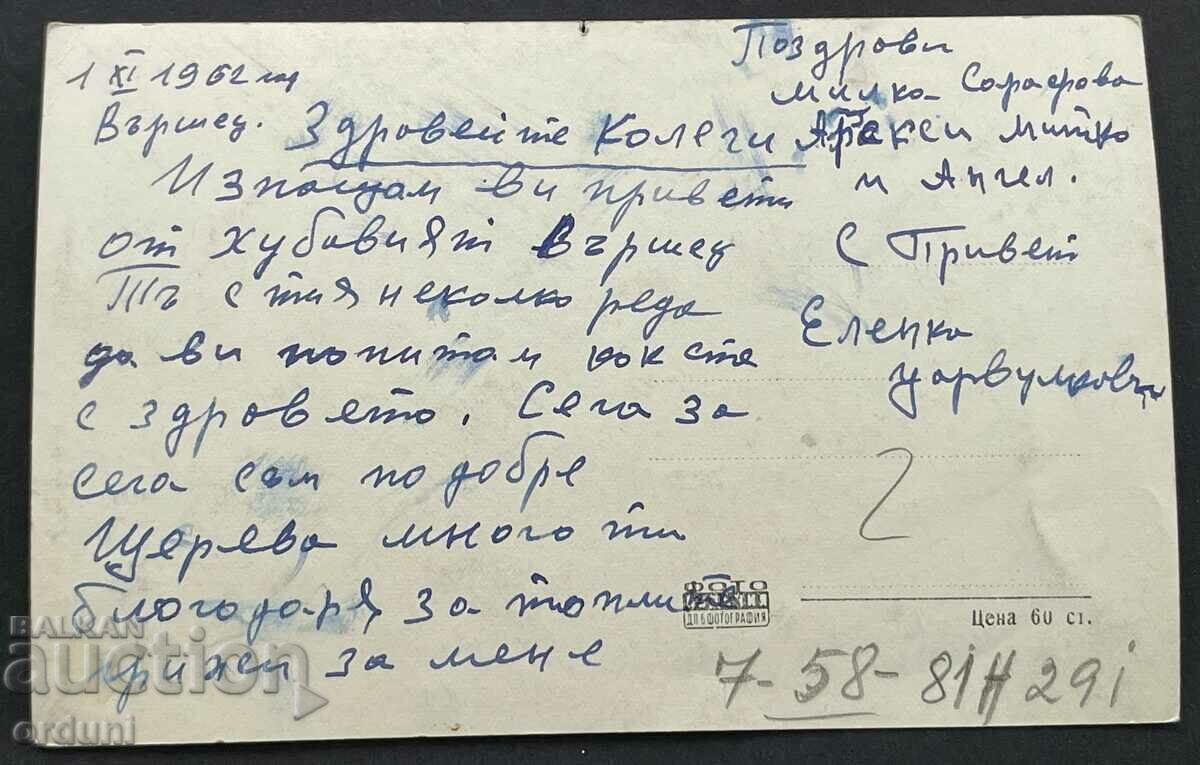 1 XI 1962 год
Вършец.
Здравейте Колеги
Изпощам ви привети
от хубавият Вършец
Тъ с тия неколко реда
да ви попитам как сте
с здравето. Сега за
сега съм по добре
Щерева много ти
благодаря за топлите
грижи за мене
Поздрави
Милка Сарафова
Аракси Митко
и Ангел.
С Привет
Еленка
2
ФОТО
ДП БФОТОГРАФИЯ
Цена 60 ст.
7-58-81
BALKAN
auction
orduni